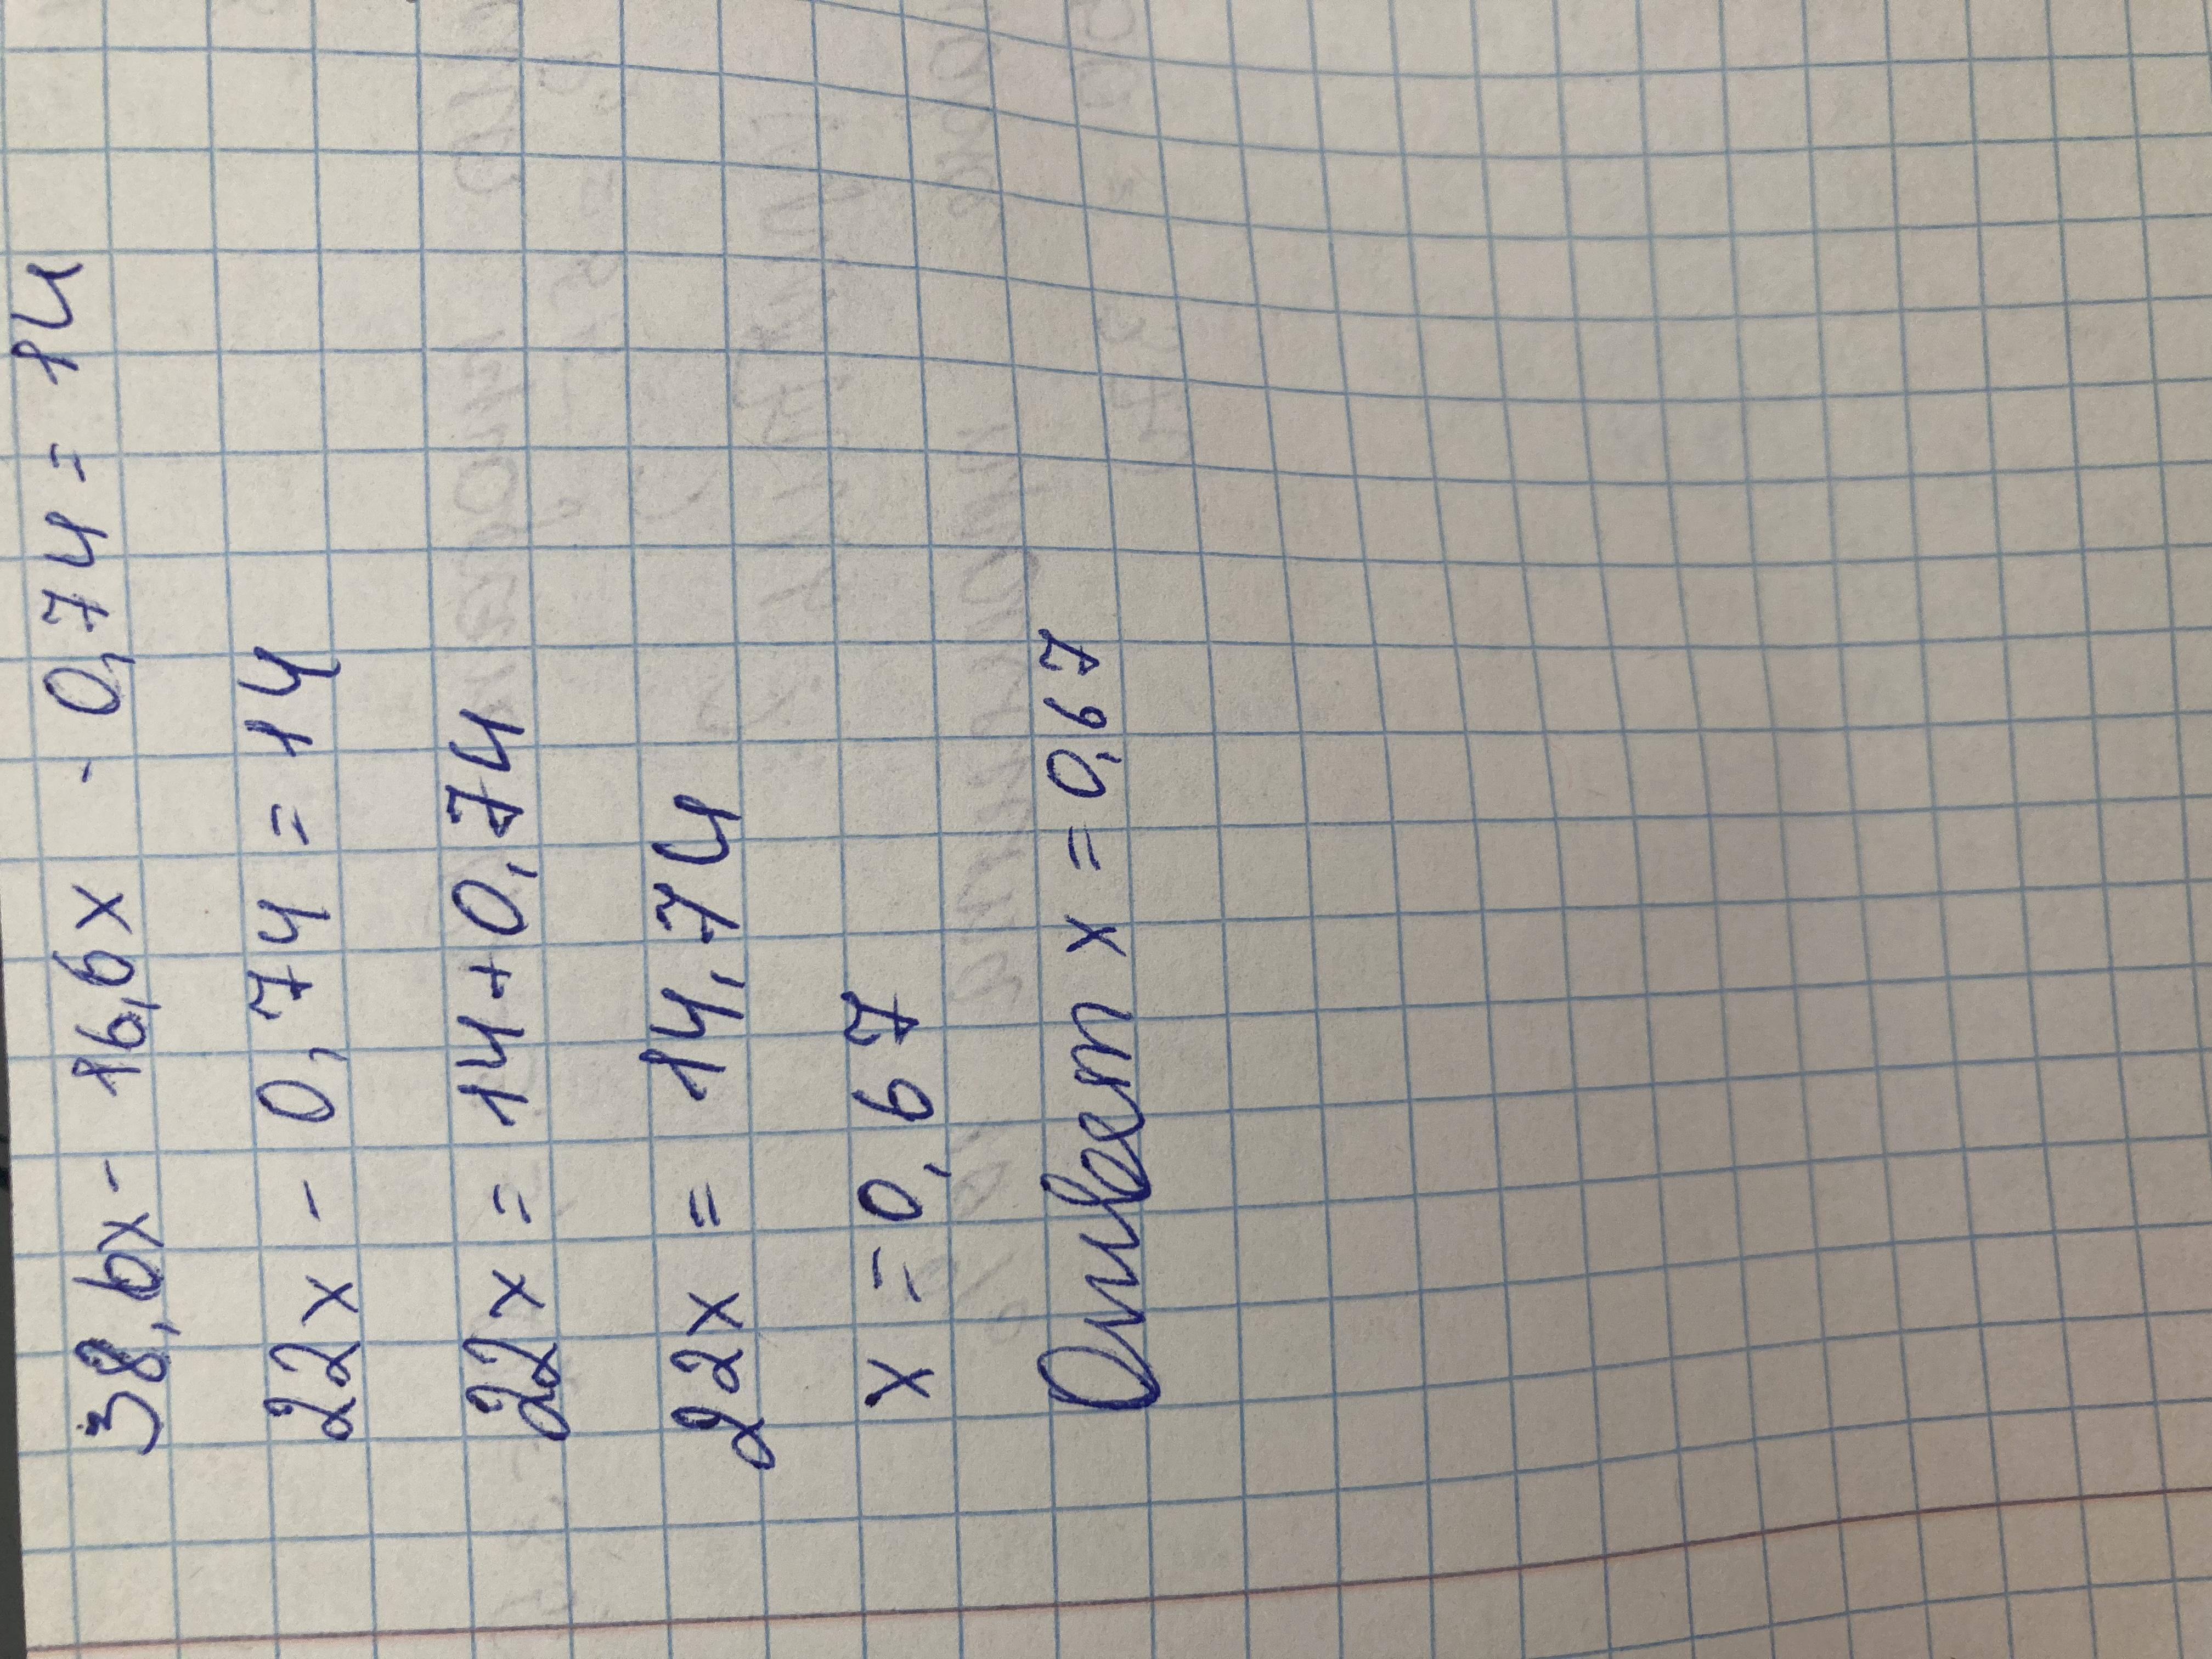 38,6x - 16,6x - 0,74 = 14
22x - 0,74 = 14
22x = 14+0,74
22x = 14,74
x = 0,67
Ответ x = 0,67